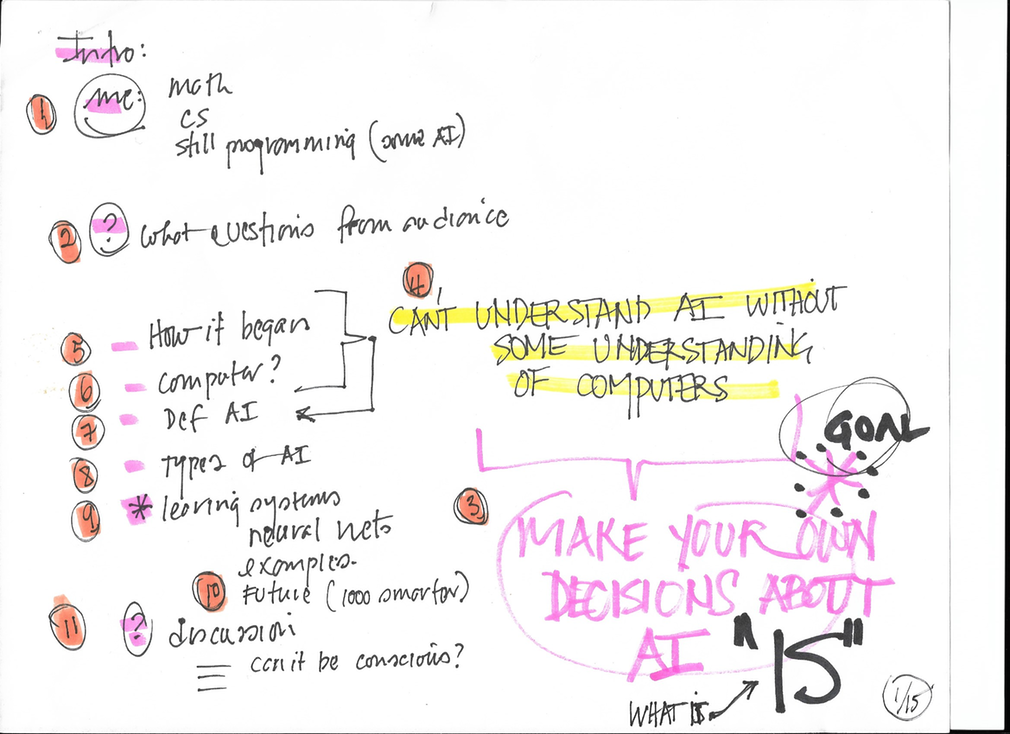 Intro:
1 me: math
CS
still programming (some AI)
2 ? what questions from audience
4,
CAN'T UNDERSTAND AI WITHOUT
SOME UNDERSTANDING
OF COMPUTERS
5 - How it began
6 - computer?
7 - Def AI
8 - Types of AI
9 * learing systems
neural nets
examples.
10 Future (1000 smarter)
11 ? discussion
can it be conscious?
GOAL
*
3 MAKE YOUR OWN
DECISIONS ABOUT
AI "IS"
WHAT IS
1/15